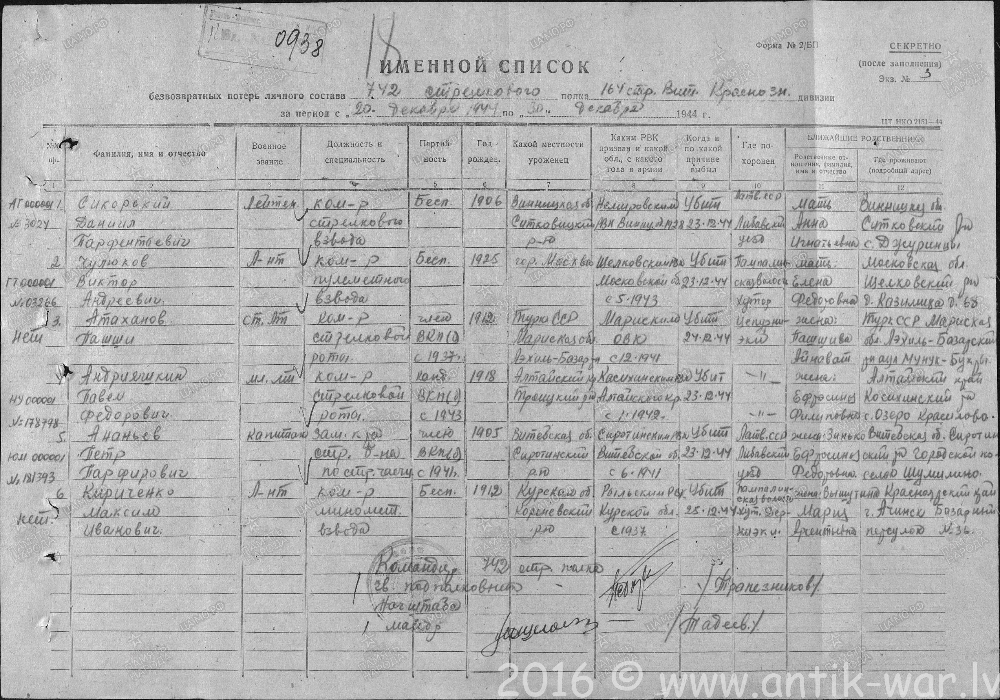 0938
18
Форма № 2/БП
СЕКРЕТНО
(после заполнения)
Экз. № 3
ИМЕННОЙ СПИСОК
безвозвратных потерь личного состава 742 стрелкового полка 164 стр. Вит. Краснозн. дивизии
за период с „20“ декабря 1944 по „30“ декабря 1944 г.
ЦТ НКО
№№ пр.
Фамилия, имя и отчество
Военное звание
Должность и специальность
Партийность
Год рожден.
Какой местности уроженец
Каким РВК призван и какой обл., с какого года в армии
Когда и по какой причине выбыл
Где похоронен
БЛИЖАЙШИЕ РОДСТВЕННИКИ
Родственное отношение, фамилия, имя и отчество
Где проживают (подробный адрес)
1 2 3 4 5 6 7 8 9 10 11 12
АГ 000001 1. Сикорский Лейтен. ком-р Бесп. 1906 Винницкая об. Немировским Убит Латв. ССР мать Винницкая об.
№ 3024 Даниил стрелкового Ситковицкий РВК 23-12-44 Либавский Анна Ситковский р-н
Парфентьевич взвода р-н уезд Игнатьевна с. Джуринцы
2. Чулюков Л-нт ком-р Бесп. 1925 гор. Москва Щелковским Убит мать: Московская обл.
ГГ 000001 Виктор пулеметного Московской об. 23-12-44 Елена Щелковский р-н
№ 03266 Андреевич. взвода с 5-1943 хутор Федоровна
3. Атаханов ст. лт ком-р член 1912 Турк ССР Марыским Убит жена: Турк ССР Марыская
Нет Пашши стрелковой ВКП(б) Марыская об. ОВК 24-12-44 Пашшива
роты. с 1937. с 12-1941 Айнават
4. Андрияшкин мл. лт ком-р канд. 1918 Алтайский кр Косихинским Убит —"— жена: Алтайский край
НУ 000001 Павел стрелковой ВКП(б) Троицкий р-н Алтайского кр. 23-12-44 Ефросинья Косихинский р-н
№ 178798 Федорович роты. с 1943 с 1-1942. —"— Филиповна с. Озеро Красилово.
5. Ананьев капитан зам. к-ра член 1905 Витебская об. Сиротинским Убит Латв. ССР жена: Зинько Витебская об. Сиротин
ЮМ 000001 Петр стр. б-на ВКП(б) Сиротинский Витебской об. 23-12-44 Либавский Ефросинья ский р-н городской по-
Парфирович по стр. части с 1941. р-н с 6-1941 уезд Федоровна селок Шумилино.
6. Кириченко Л-нт ком-р Бесп. 1912 Курская об. Рыльским РВК Убит жена Красноярский край
Нет. Максим миномет. Кореневский Курской обл. 25-12-44 Мария г. Ачинск Базарный
Иванович. взвода р-н с 1937 переулок № 36.
Командир 742 стр. полка
гв. подполковник — /Трапезников/
Нач штаба
майор — /Тадеев/
2016 © www.antik-war.lv